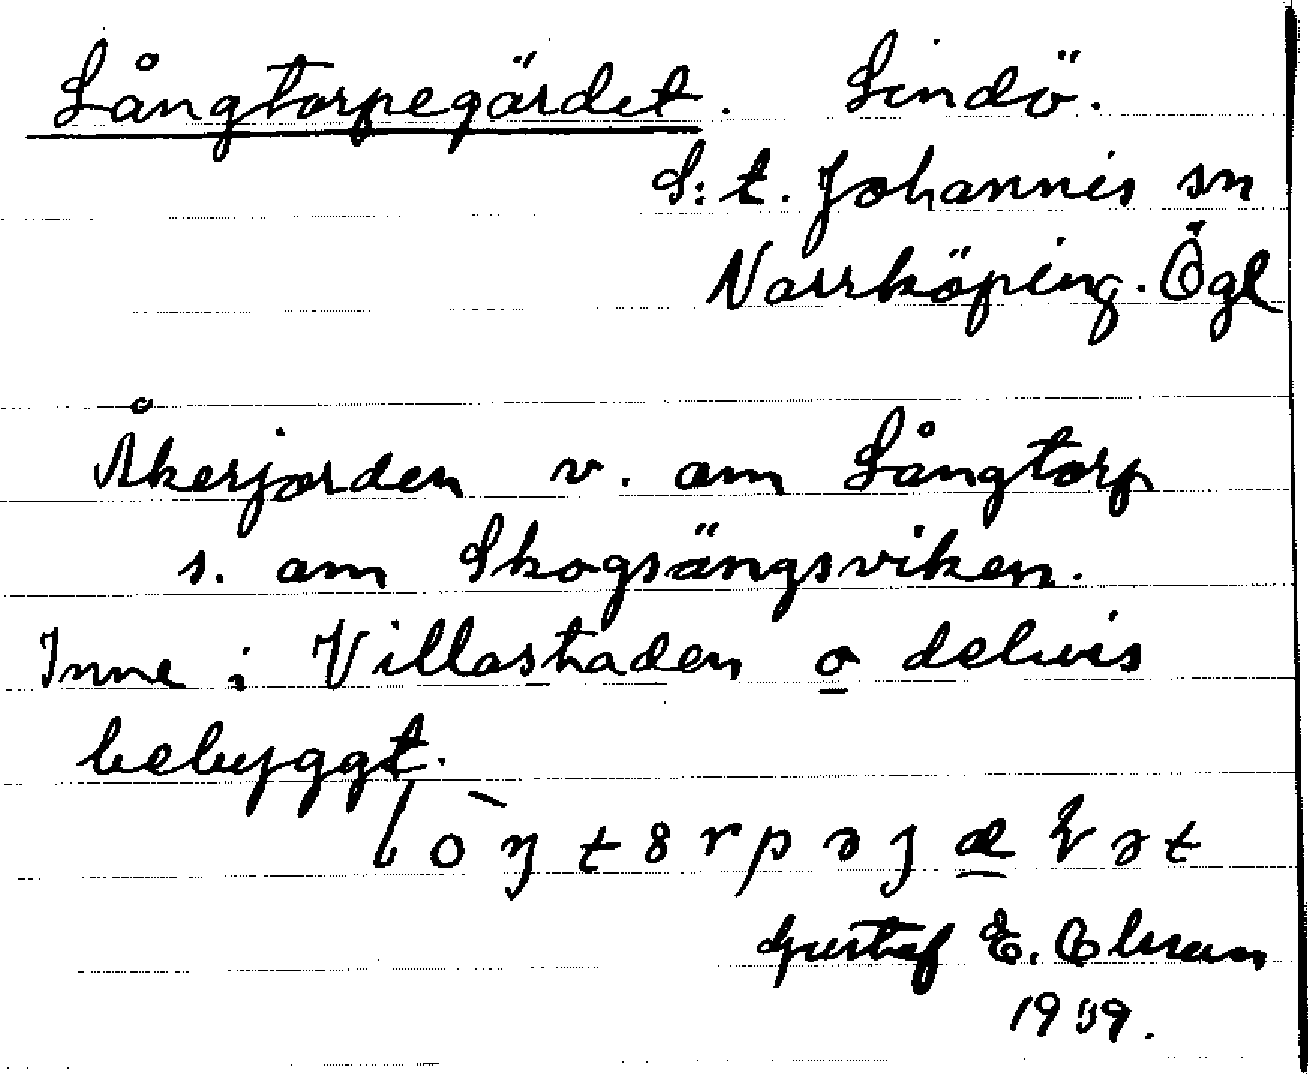 Långtorpegärdet. Lindö.
S:t. Johannis sn
Norrköping. Ögl
Åkerjorden v. om Långtorp
s. om Skogsängsviken.
Inne i Villastaden o delvis
bebyggt.
Gustaf E.
19